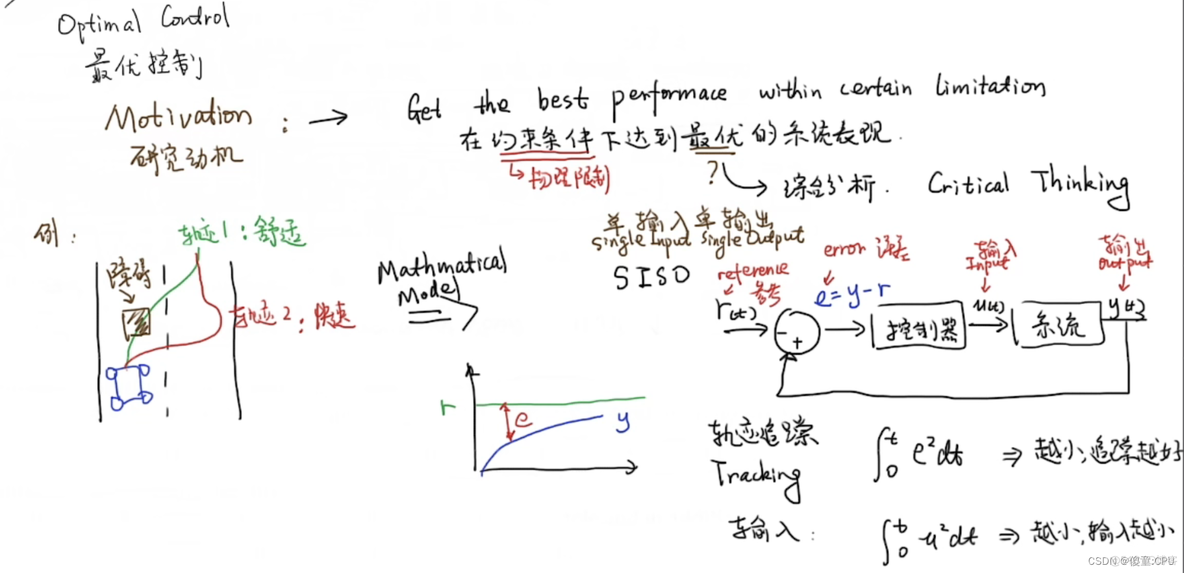 Optimal Control
最优控制
Motivation : →
研究动机
Get the best performace within certain limitation
在约束条件下达到最优的系统表现.
物理限制
?
综合分析. Critical Thinking
例:
轨迹1:舒适
障碍
轨迹2:快速
Mathmatical
Model
单输入单输出
Single Input Single Output
SISO
reference
参考
r(t)
error 误差
e=y-r
输入
Input
u(t)
输出
Output
y(t)
-
+
控制器
系统
r
e
y
轨迹追踪
Tracking
∫₀ᵗ e²dt ⇒ 越小,追踪越好
输入:
∫₀ᵗ u²dt ⇒ 越小,输入越小
CSDN @傻童:CPU